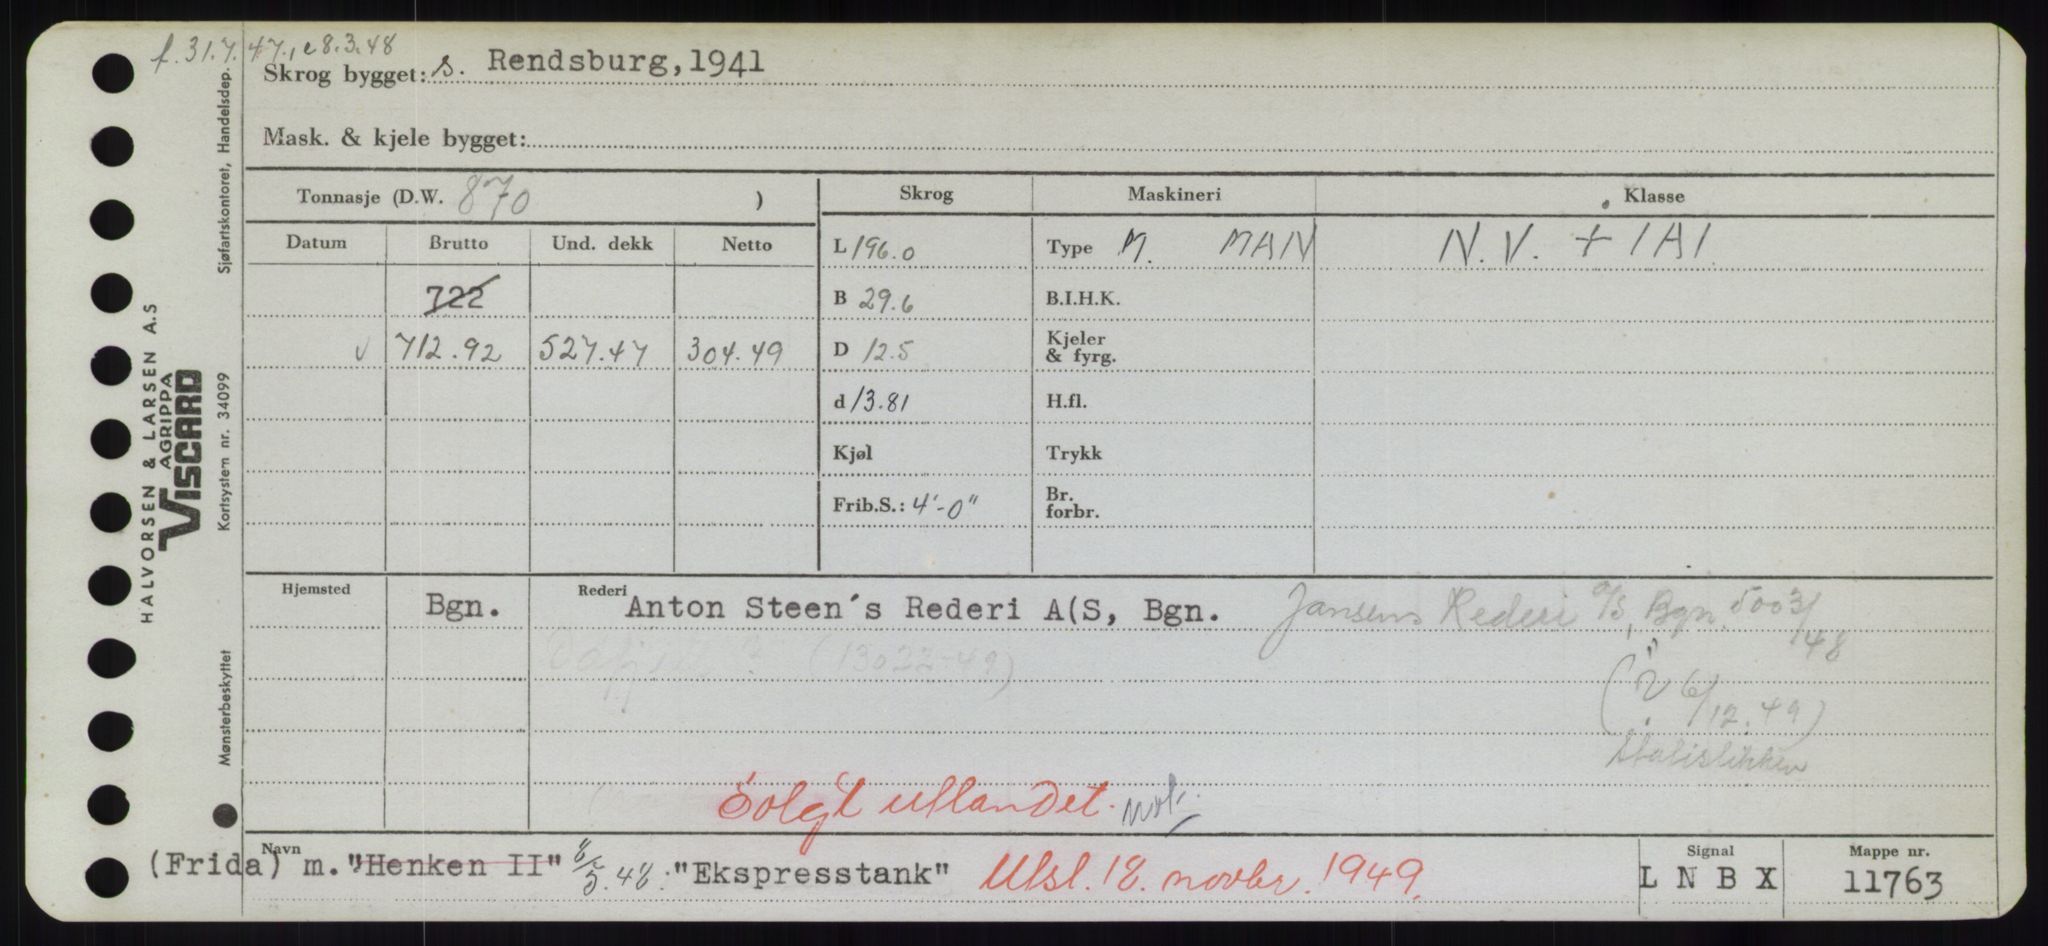 f. 31.7.47., e 8.3.48
Skrog bygget: s. Rendsburg, 1941
Mask. & kjele bygget:
Tonnasje (D.W. 870 )
Skrog Maskineri Klasse
Datum Brutto Und. dekk Netto
L 196.0 Type M. MAN N.V. + 1A1
722 B 29.6 B.I.H.K.
v 712.92 527.47 304.49 D 12.5 Kjeler & fyrg.
d 13.81 H.fl.
Kjøl Trykk
Frib.S.: 4'-0" Br. forbr.
Hjemsted Bgn. Rederi Anton Steen´s Rederi A(S, Bgn. Jansens Rederi a/s, Bgn. 5003/48
(13022-49)
( " 6/12.49)
Statistikken
Solgt utlandet.
Navn
(Frida) m. "Henken II" 8/5.48: "Ekspresstank" Utsl. 18. novbr. 1949.
Signal L N B X
Mappe nr. 11763
HALVORSEN & LARSEN A.S
AGRIPPA
VISCARD
Sjøfartskontoret, Handelsdep.
Kortsystem nr. 34099
Mønsterbeskyttet